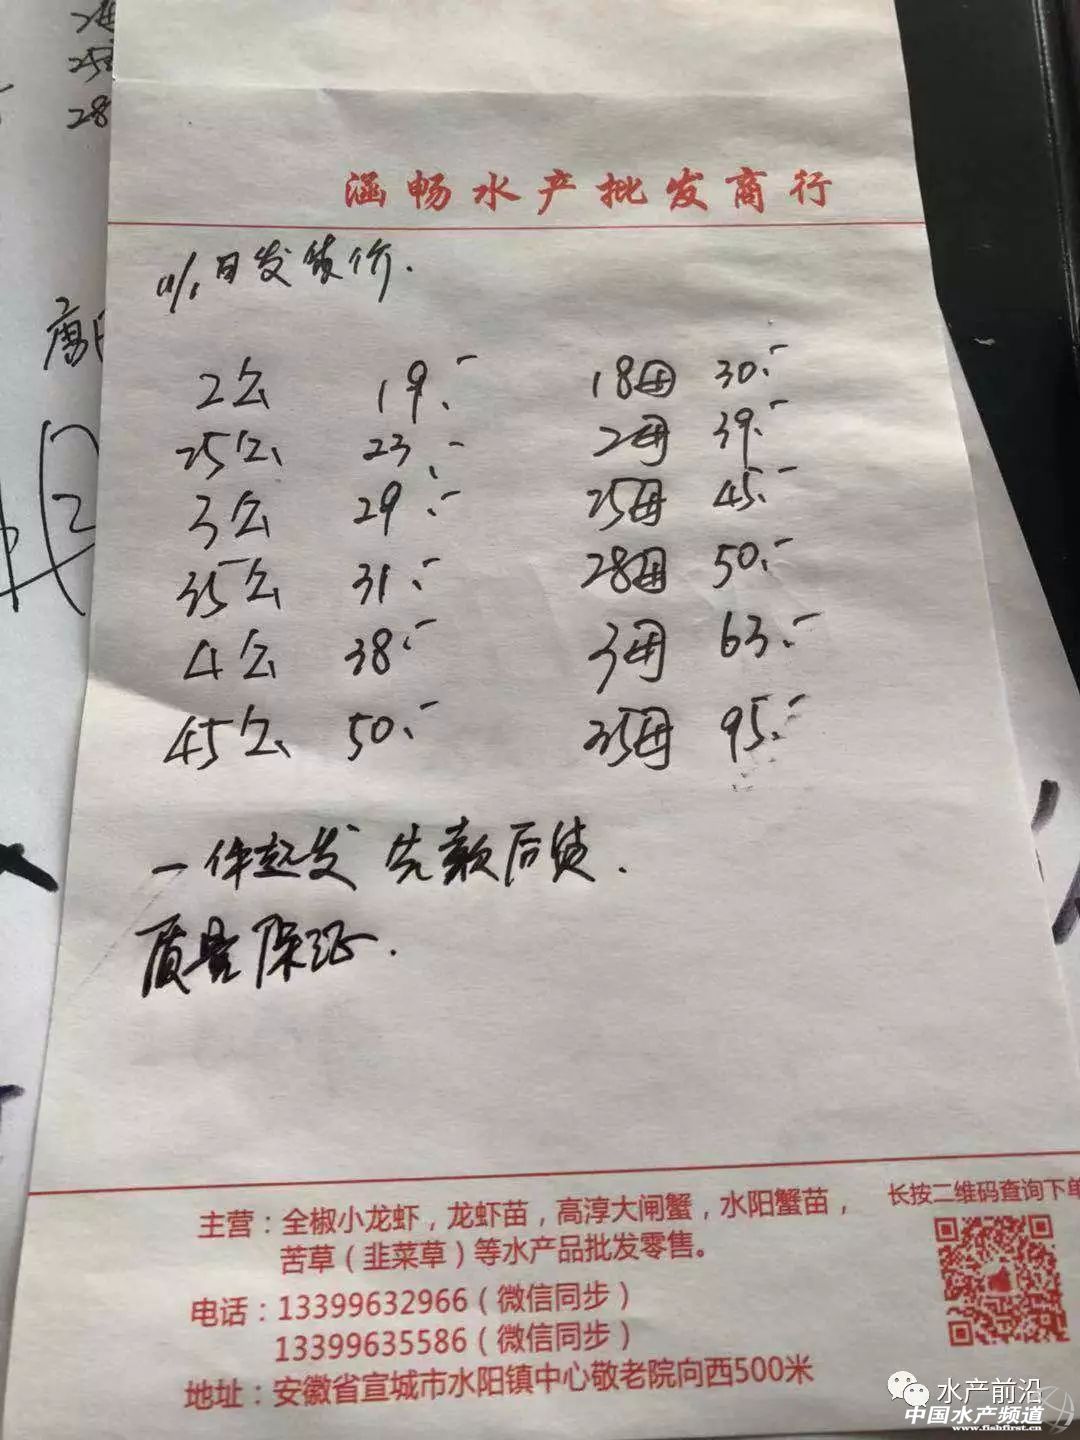 涵畅水产批发商行
11/1日发货价.
2公 19.- 18母 30.-
25公 23.- 2母 39.-
3公 29.- 25母 45.-
35公 31.- 28母 50.-
4公 38.- 3母 63.-
45公 50.- 35母 95.-
一件起发 先款后货.
质量保证.
主营：全椒小龙虾，龙虾苗，高淳大闸蟹，水阳蟹苗，
苦草（韭菜草）等水产品批发零售。
电话：13399632966（微信同步）
13399635586（微信同步）
地址：安徽省宣城市水阳镇中心敬老院向西500米
长按二维码查询下单
水产前沿
中国水产频道
www.fishfirst.cn